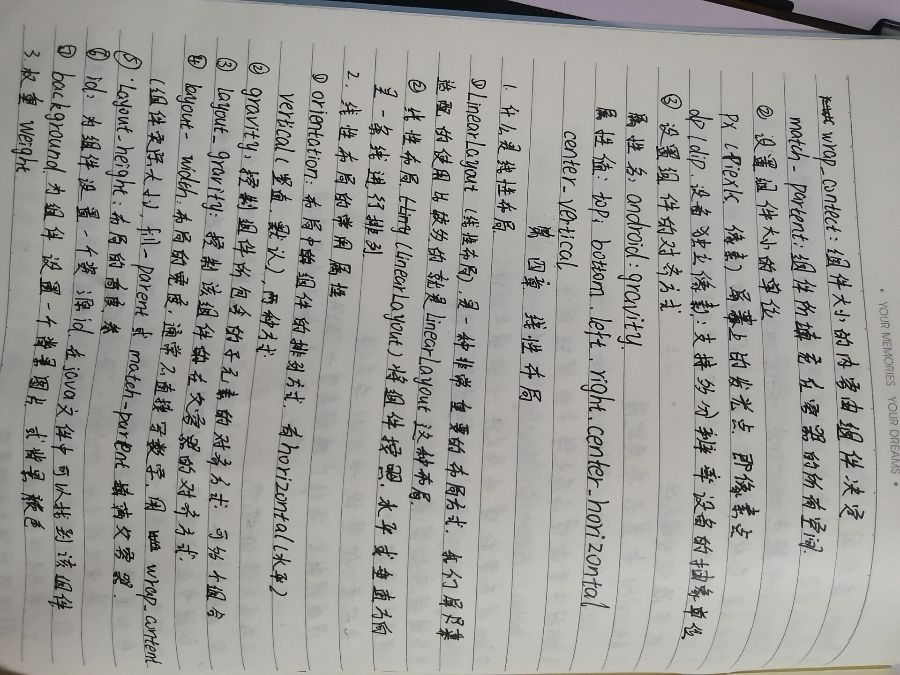 • YOUR MEMORIES YOUR DREAMS •
wrap_contect:组件大小的内容由组件决定
match-parent:组件价填充式容器的所有空间.
② 设置组件大小的单位
px (Piexls 像素) 屏幕上的发光点 即像素点
dp/dip.设备独立像素:支持纷分辨率设备的抽象单位
③ 设置组件的对齐方式
属性名:android:gravity
属性值:top.bottom.left.right.center_horizontal
center_vertical
第四章 线性布局
1.什么是线性布局.
①LinearLayout(线性布局)是一种非常重要的布局方式.我们屏
适配的使用比较多的就是LinearLayout这种布局.
② 线性布局(LinearLayout)将组件按照.水平或垂直方向
呈一条线进行排列
2.线性布局的常用属性
①orientation:布局中的组件的排列方式.有horizontal(水平)
vertical(竖直,默认),两种方式
② gravity:控制组件所包含的子元素的对齐方式.可多个组合
③ layout_gravity:控制该组件的在父容器的对齐方式.
④ layout-width:布局的宽度,通常不直接写数字 用 wrap_content
(组件实际大小),fill-parent或match-parent填满父容器.
⑤ Layout-height:布局的高度.参
⑥ id:为组件设置一个资源id.在java文件中可以找到该组件
⑦ background为组件设置一个背景图片 或背景颜色
3.权重weight.